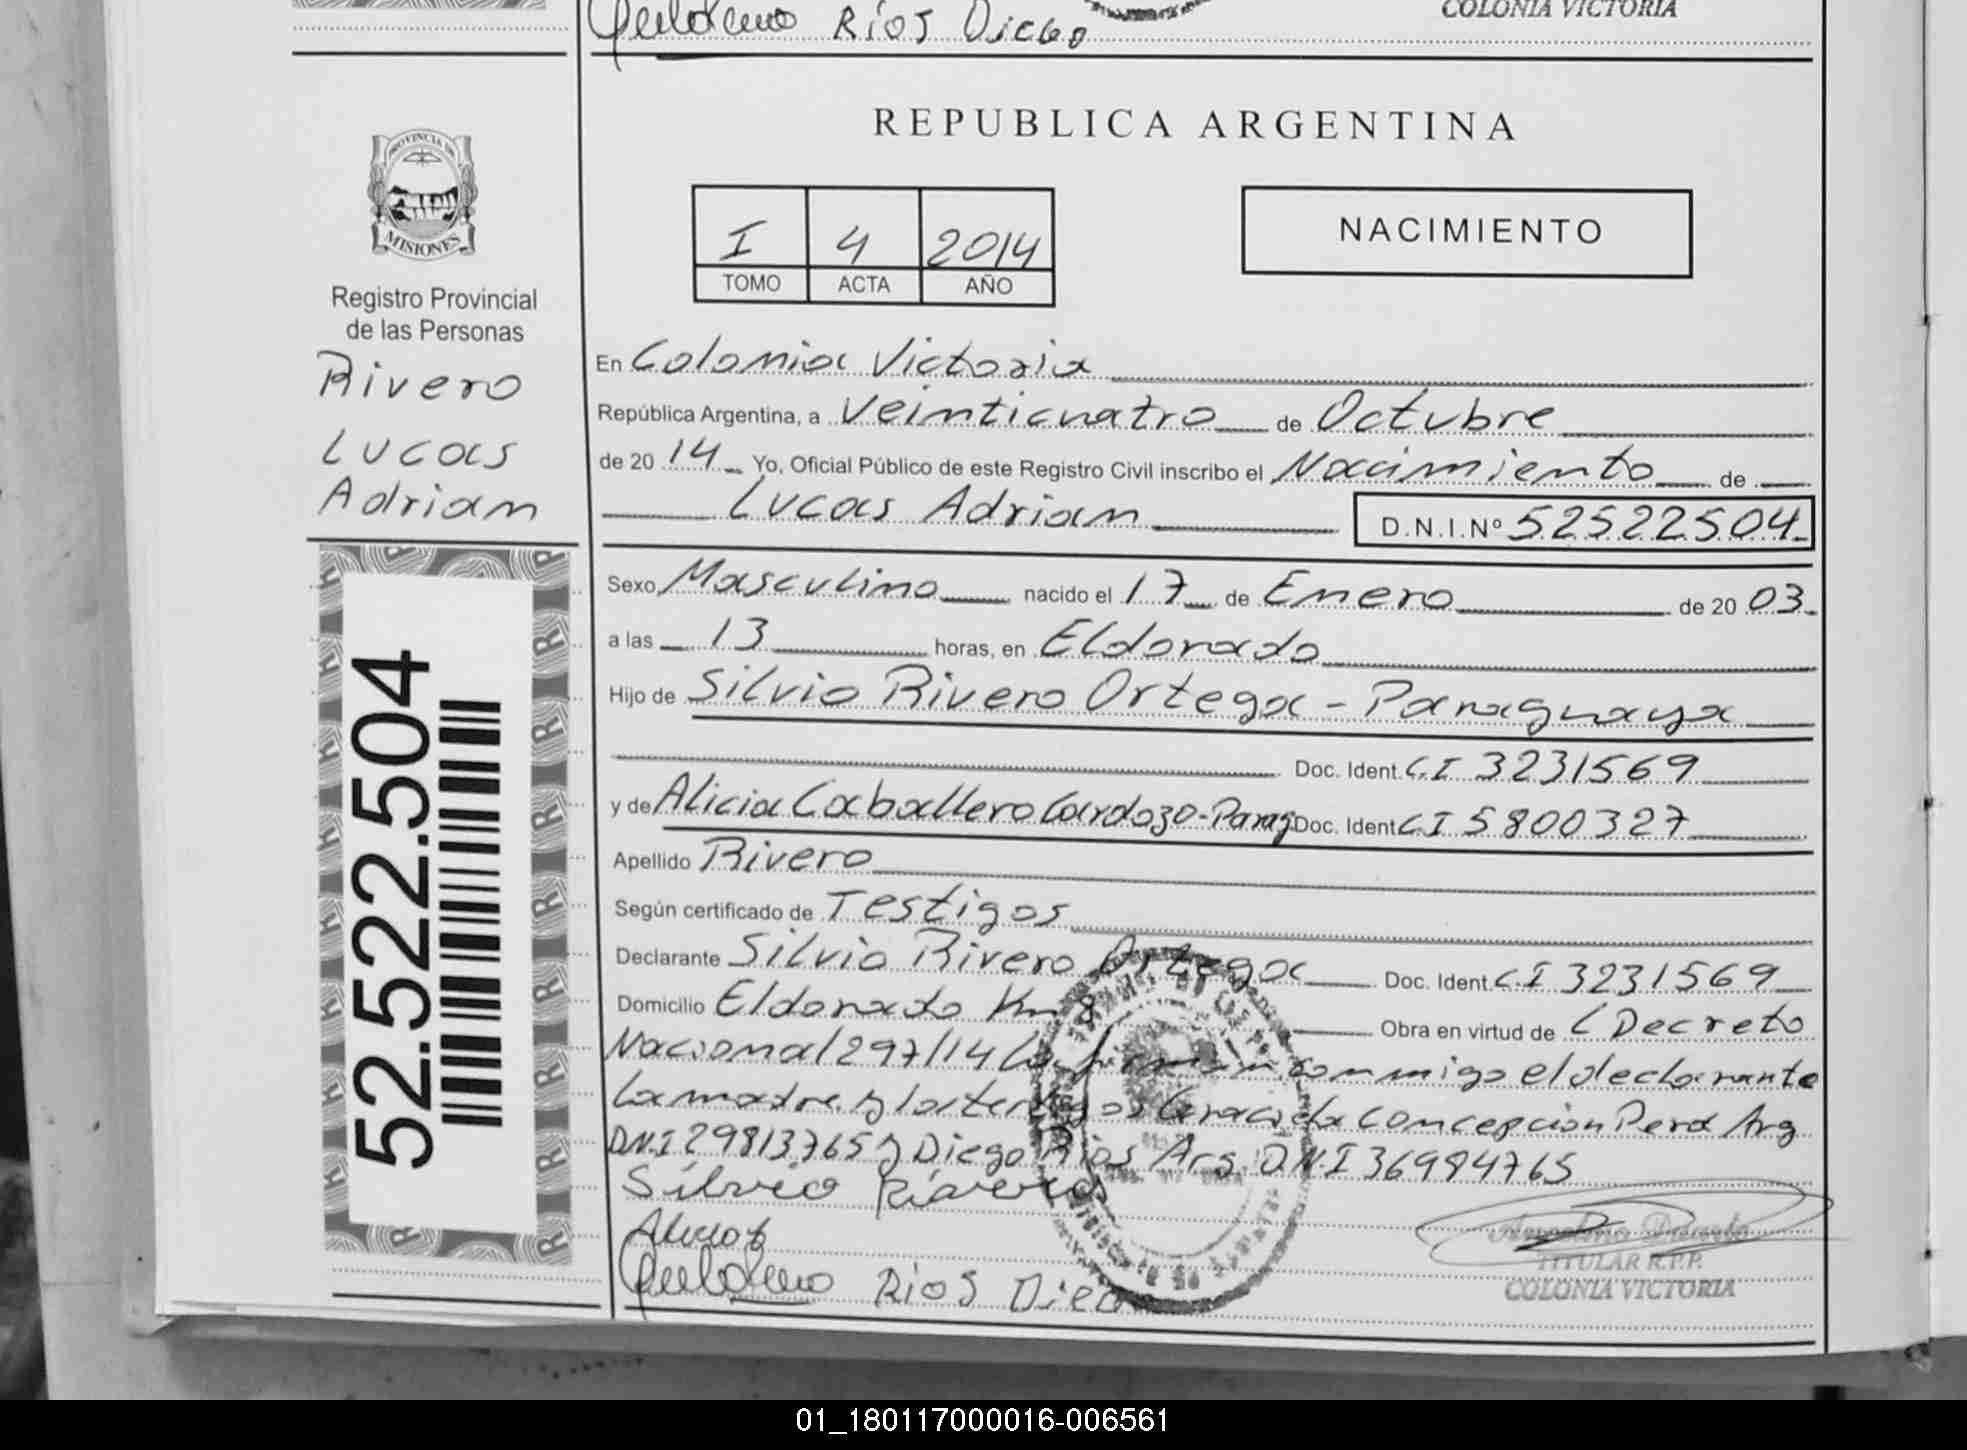 Rios Diego
COLONIA VICTORIA
PROVINCIA DE
MISIONES
Registro Provincial
de las Personas
Rivero
Lucas
Adrian
52.522.504
REPUBLICA ARGENTINA
I 4 2014
TOMO ACTA AÑO
NACIMIENTO
En Colonia Victoria
República Argentina, a Veinticuatro de Octubre
de 20 14 Yo, Oficial Público de este Registro Civil inscribo el Nacimiento de
Lucas Adrian D.N.I.Nº 52522504
Sexo Masculino nacido el 17 de Enero de 20 03
a las 13 horas, en Eldorado
Hijo de Silvio Rivero Ortega - Paraguaya
Doc. Ident. C.I 3231569
y de Alicia Caballero Cardozo - Parag Doc. Ident C I 5800327
Apellido Rivero
Según certificado de Testigos
Declarante Silvio Rivero Ortega Doc. Ident. C.I 3231569
Domicilio Eldorado Km 8 Obra en virtud de L Decreto
Nacional 297/14 conmigo el declarante
La madre y los testigos Graciela Concepcion Pera Arg
D.N.I 29813765 y Diego Rios Arg. D.N.I 36984765
Silvio Rivero
Rios Dieg
TITULAR R.P.P.
COLONIA VICTORIA
01_180117000016-006561